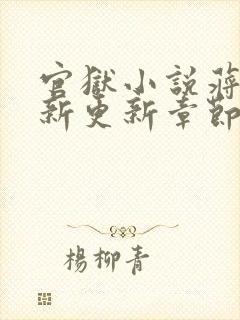 官獄小說蔣
新更新章節
楊柳青